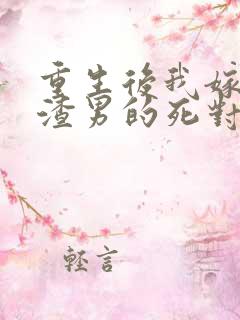 重生後我嫁
渣男的死對
輕言